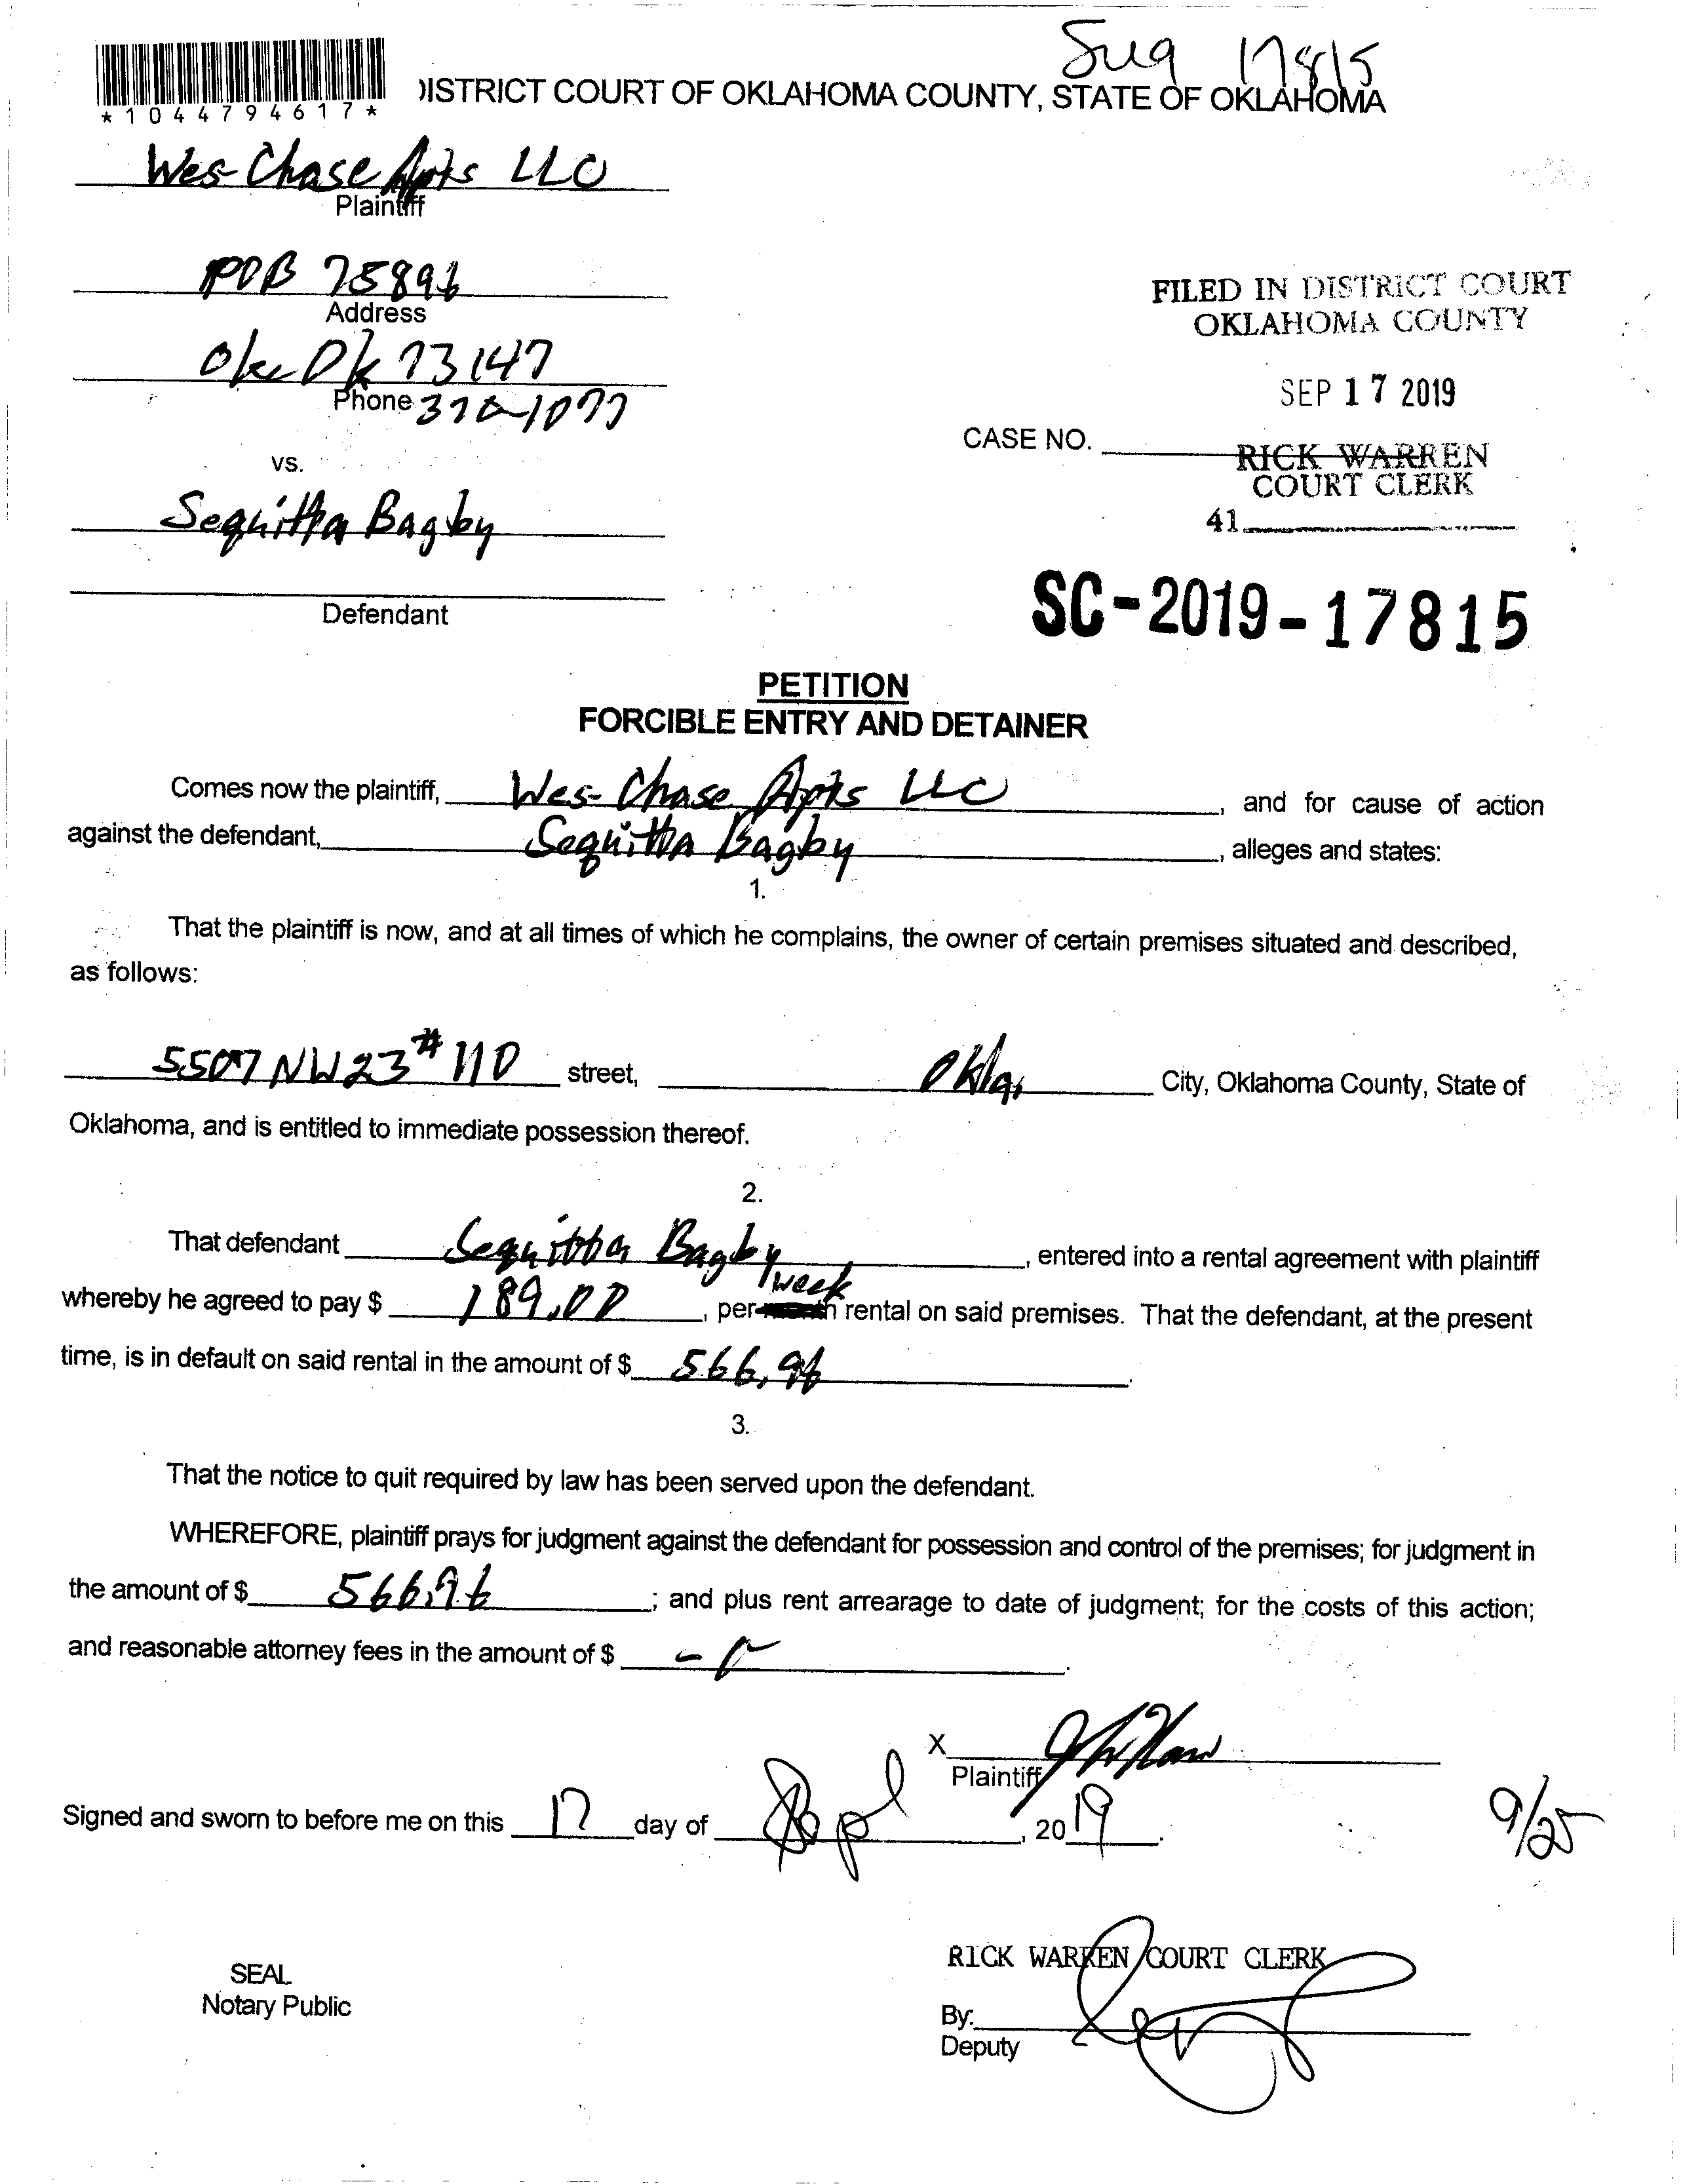 Sug 17815
*1044794617*
DISTRICT COURT OF OKLAHOMA COUNTY, STATE OF OKLAHOMA
Wes-Chase Apts LLC
Plaintiff
POB 75896
Address
Okc Ok 73147
Phone 370-1077
FILED IN DISTRICT COURT
OKLAHOMA COUNTY
SEP 17 2019
CASE NO.
RICK WARREN
COURT CLERK
41
vs.
Sequitta Bagby
Defendant
SC-2019-17815
PETITION
FORCIBLE ENTRY AND DETAINER
Comes now the plaintiff, Wes-Chase Apts LLC, and for cause of action
against the defendant, Sequitta Bagby, alleges and states:
1.
That the plaintiff is now, and at all times of which he complains, the owner of certain premises situated and described,
as follows:
5507 NW 23 # 110 street, Okla, City, Oklahoma County, State of
Oklahoma, and is entitled to immediate possession thereof.
2.
That defendant Sequitta Bagby, entered into a rental agreement with plaintiff
week
whereby he agreed to pay $ 189.00, per month rental on said premises. That the defendant, at the present
time, is in default on said rental in the amount of $ 566.96.
3.
That the notice to quit required by law has been served upon the defendant.
WHEREFORE, plaintiff prays for judgment against the defendant for possession and control of the premises; for judgment in
the amount of $ 566.96; and plus rent arrearage to date of judgment; for the costs of this action;
and reasonable attorney fees in the amount of $
X
Plaintiff
Signed and sworn to before me on this 17 day of Sept, 2019.
9/25
SEAL
Notary Public
RICK WARREN COURT CLERK
By:
Deputy